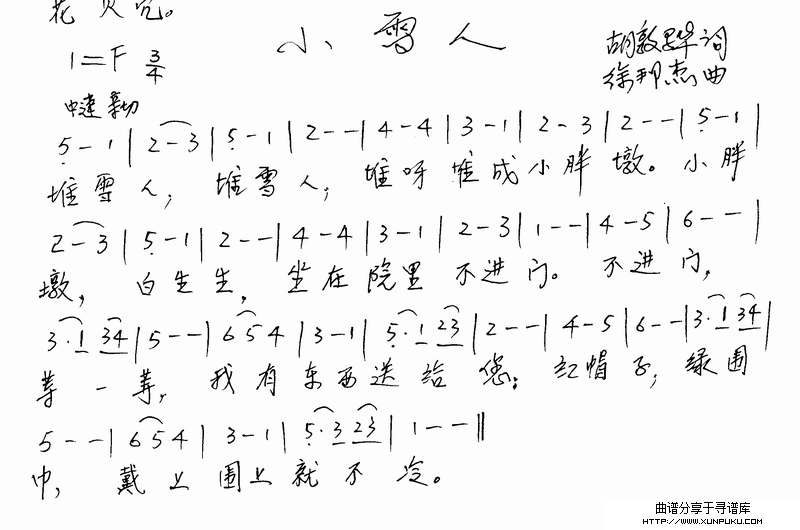 花 贝 咒。
小 雪 人
1=F 3/4
胡敦骅词
徐邦杰曲
中速 亲切
5 - 1 | 2 - 3 | 5 - 1 | 2 - - | 4 - 4 | 3 - 1 | 2 - 3 | 2 - - | 5 - 1 |
堆 雪 人, 堆 雪 人, 堆 呀 堆 成 小 胖 墩。 小 胖
2 - 3 | 5 - 1 | 2 - - | 4 - 4 | 3 - 1 | 2 - 3 | 1 - - | 4 - 5 | 6 - - |
墩, 白 生 生, 坐 在 院 里 不 进 门。 不 进 门,
3 · 1 3 4 | 5 - - | 6 5 4 | 3 - 1 | 5 · 1 2 3 | 2 - - | 4 - 5 | 6 - - | 3 · 1 3 4 |
等 一 等, 我 有 东 西 送 给 您; 红 帽 子, 绿 围
5 - - | 6 5 4 | 3 - 1 | 5 · 3 2 3 | 1 - - ‖
巾, 戴 上 围 上 就 不 冷。
曲谱分享于寻谱库
HTTP://WWW.XUNPUKU.COM